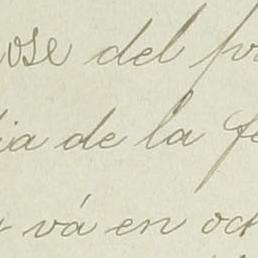 ose del pr
ia de la fe
vá en oc